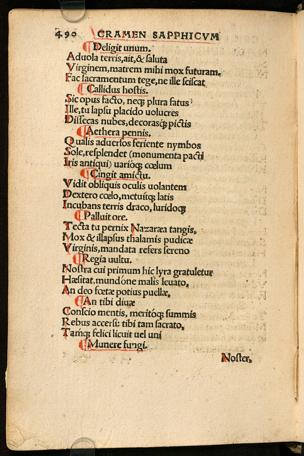 490 CRAMEN SAPPHICVM
Deligit unum.
Aduola terris, ait, & saluta
Virginem, matrem mihi mox futuram.
Fac sacramentum tege, ne ille sciscat
Callidus hostis.
Sic opus facto, neq; plura fatus:
Ille, tu lapsu placido uolucres
Dissecas nubes, decorasq; pictis
Aethera pennis.
Qualis aduerso feriente nymbos
Sole, resplendet (monumenta pacti
Iris antiqui) uarioq; cœlum
Cingit amictu.
Vidit obliquis oculis uolantem
Dextero cœlo, metuisq; latis
Incubans terris draco, luridoq;
Palluit ore.
Tecta tu pernix Nazaræa tangis,
Mox & illapsus thalamis pudicæ
Virginis, mandata refers sereno
Regia uultu.
Nostra cui primum hic lyra gratuletur
Hæsitat, mundóne malis leuato,
An deo fœtæ potius puellæ,
An tibi diuæ
Conscio mentis, meritóq; summis
Rebus accersi: tibi tam sacrato,
Tamq; felici licuit uel uni
Munere fungi.
Noster,